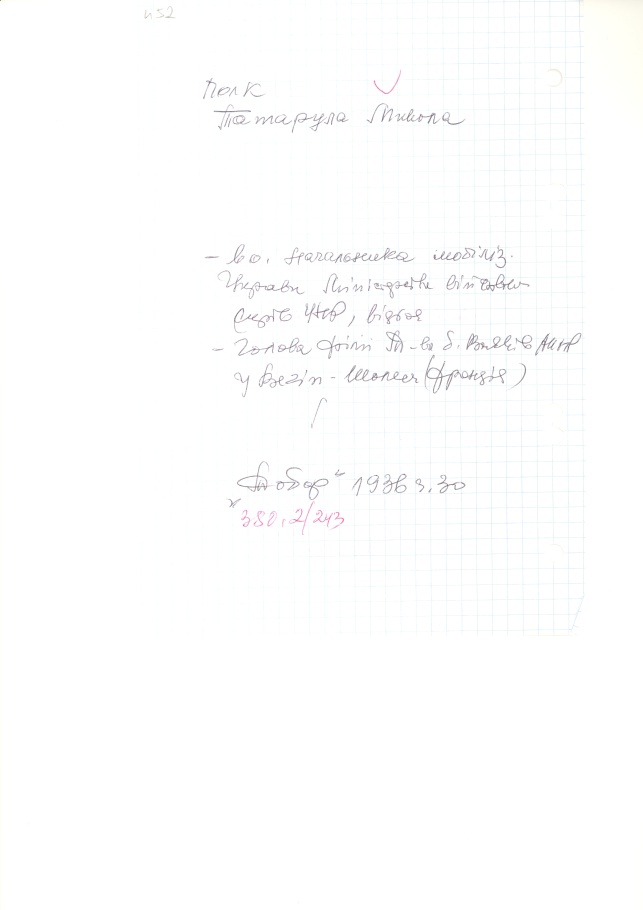 п52
Полк
Татарула Микола
– в.о. начальника мобіліз.
Управи Міністерства військових
справ УНР,
– Голова філії Т-ва б. Вояків АУНР
у Везін-Шалет (Франція)
"Табор" 1936 ч. 30
380.2/243